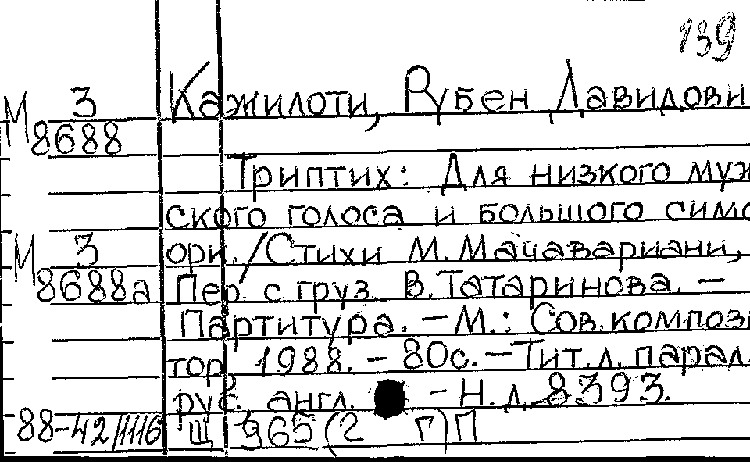 139
М 3/8688 Кажилоти, Рубен Давидови
Триптих: Для низкого муж
ского голоса и большого симф
М 3/8688а орк. / Стихи М. Мачавариани,
Пер с груз. В. Татаринова. —
Партитура. — М.: Сов. компози
тор, 1988. — 80с. — Тит. л. парал.
рус., англ. — Н. д. 8393.
88-42/1116 Щ 965(2 Г)П